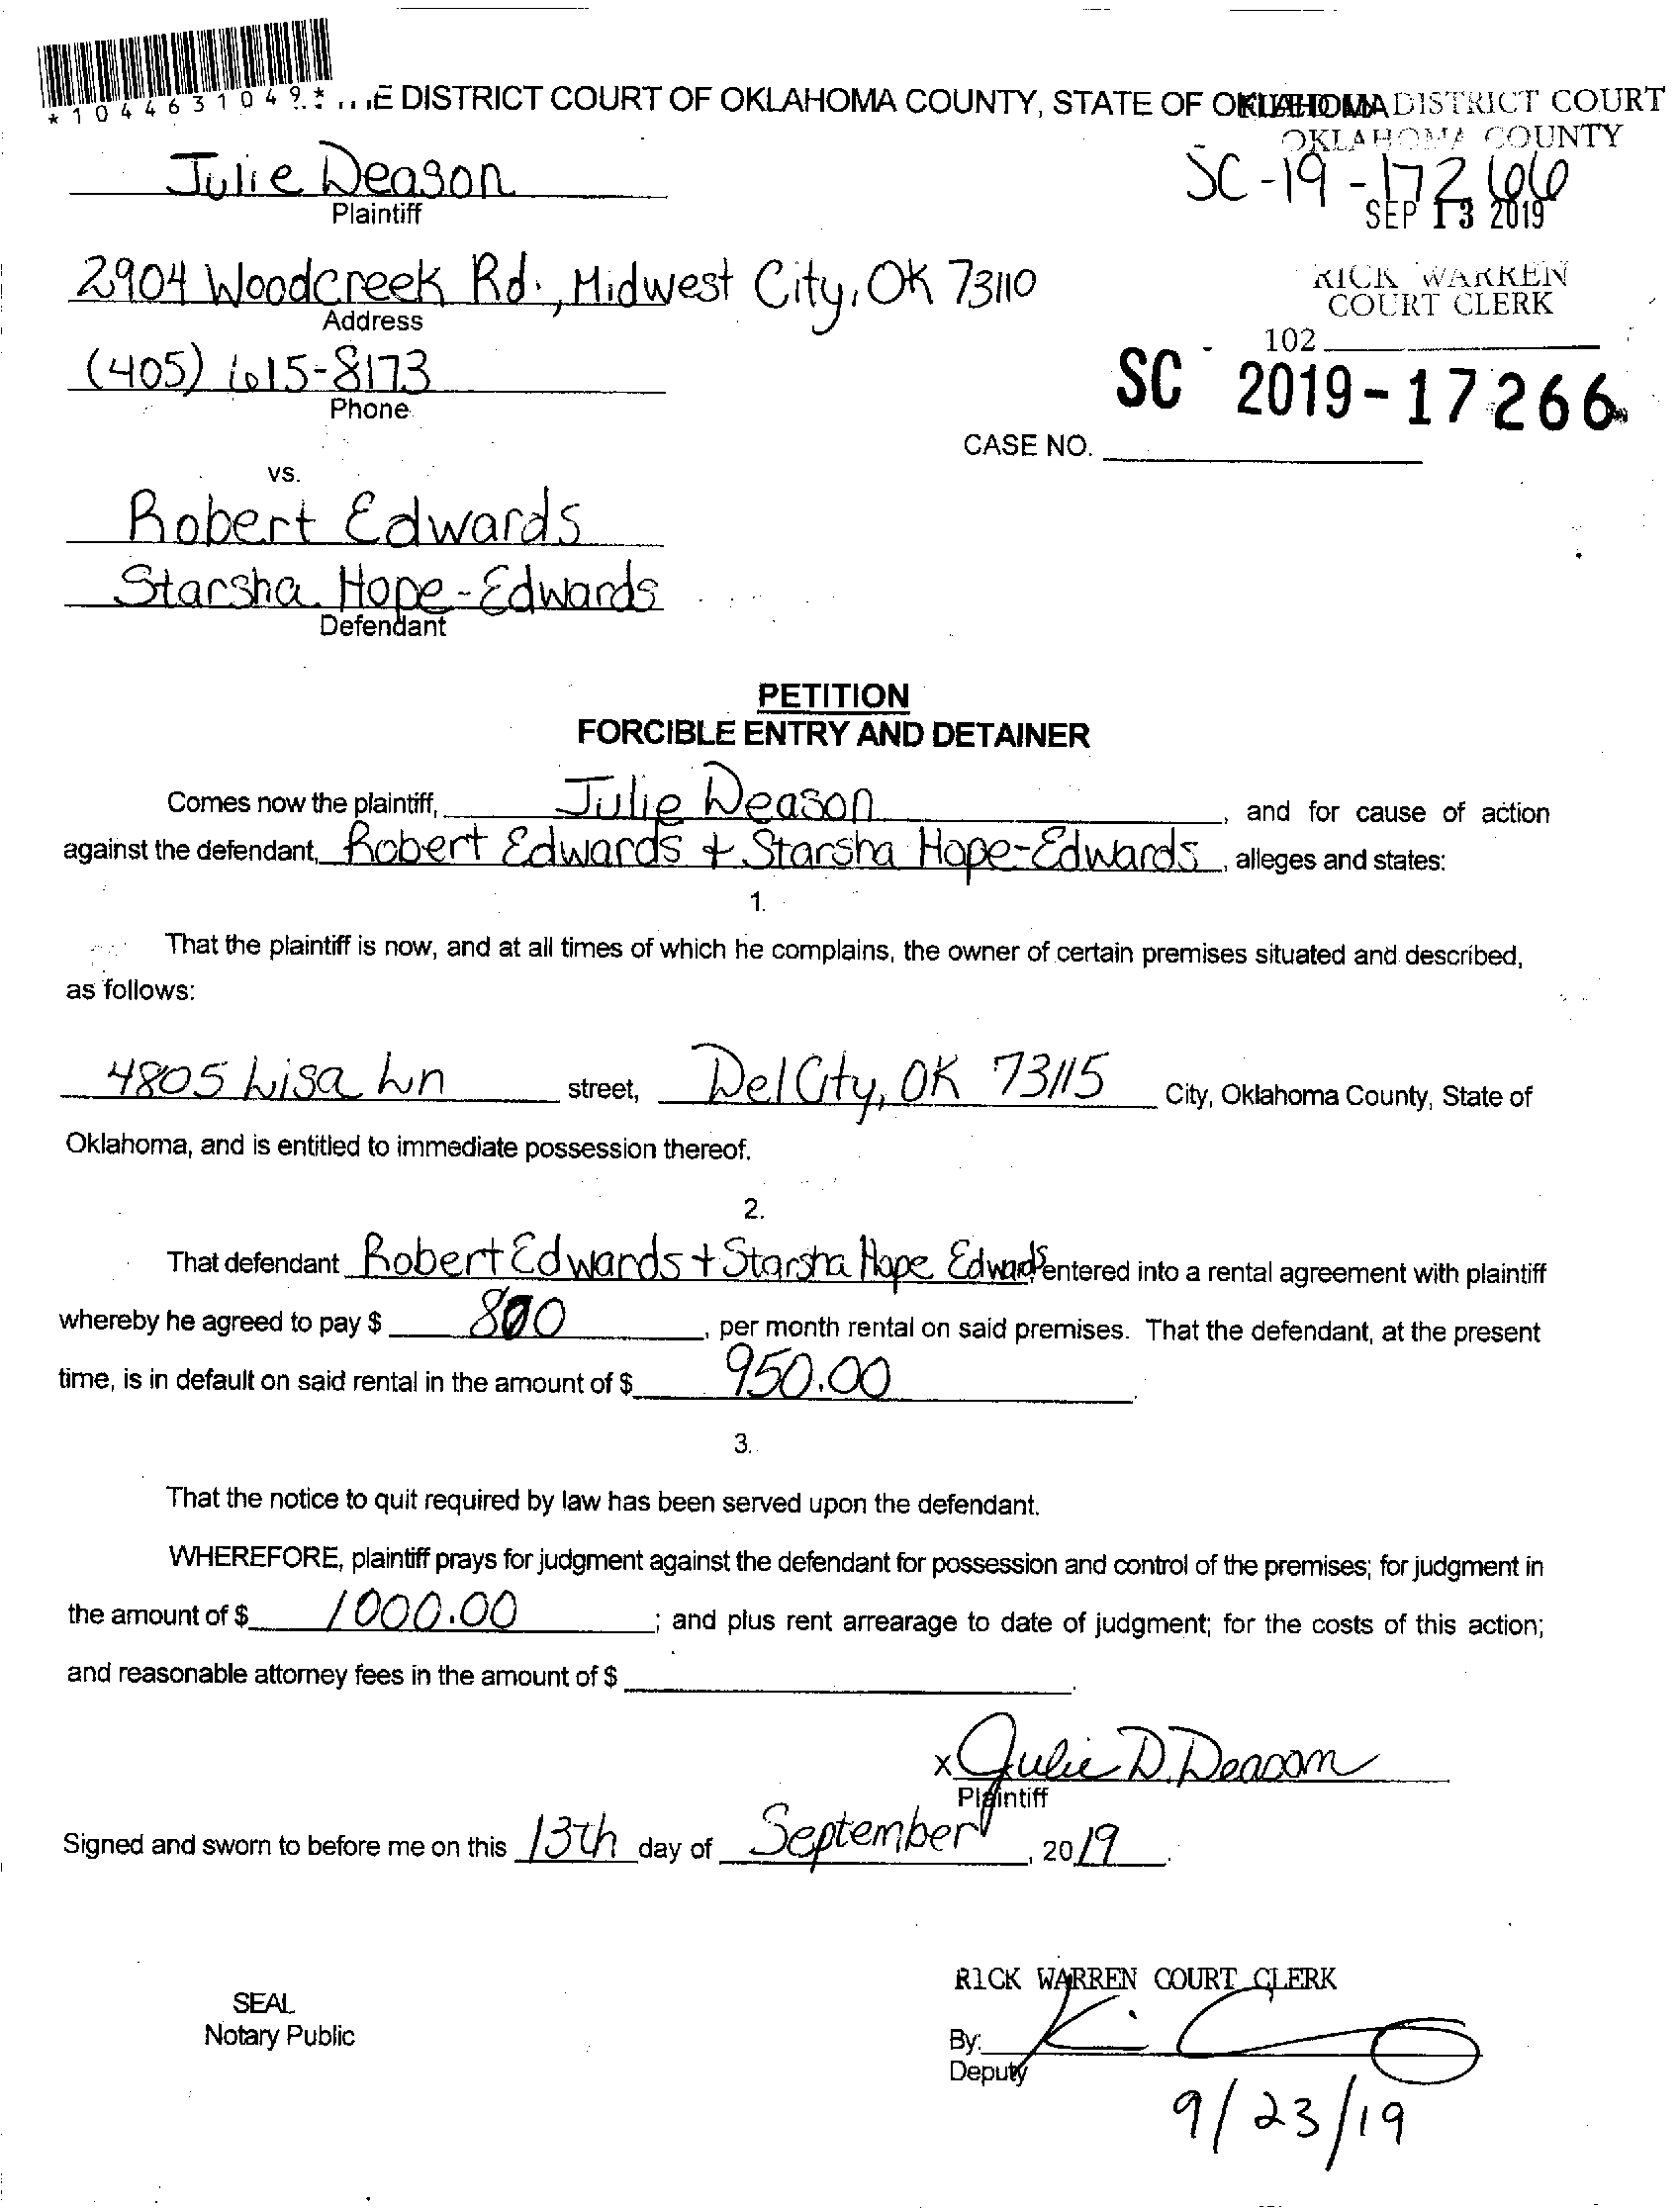 *1044631049*
E DISTRICT COURT OF OKLAHOMA COUNTY, STATE OF OKLAHOMA
DISTRICT COURT
OKLAHOMA COUNTY
Julie Deason
Plaintiff
SC-19-17266
SEP 13 2019
2904 Woodcreek Rd., Midwest City, OK 73110
Address
RICK WARREN
COURT CLERK
102
(405) 615-8173
Phone
SC 2019-17266
CASE NO.
vs.
Robert Edwards
Starsha Hope-Edwards
Defendant
PETITION
FORCIBLE ENTRY AND DETAINER
Comes now the plaintiff, Julie Deason, and for cause of action
against the defendant, Robert Edwards + Starsha Hope-Edwards, alleges and states:
1.
That the plaintiff is now, and at all times of which he complains, the owner of certain premises situated and described,
as follows:
4805 Lisa Ln street, Del City, OK 73115 City, Oklahoma County, State of
Oklahoma, and is entitled to immediate possession thereof.
2.
That defendant Robert Edwards + Starsha Hope Edwards entered into a rental agreement with plaintiff
whereby he agreed to pay $ 800, per month rental on said premises. That the defendant, at the present
time, is in default on said rental in the amount of $ 950.00.
3.
That the notice to quit required by law has been served upon the defendant.
WHEREFORE, plaintiff prays for judgment against the defendant for possession and control of the premises; for judgment in
the amount of $ 1000.00; and plus rent arrearage to date of judgment; for the costs of this action;
and reasonable attorney fees in the amount of $ .
x Julie D. Deason
Plaintiff
Signed and sworn to before me on this 13th day of September, 2019.
RICK WARREN COURT CLERK
SEAL
Notary Public
By:
Deputy
9/23/19